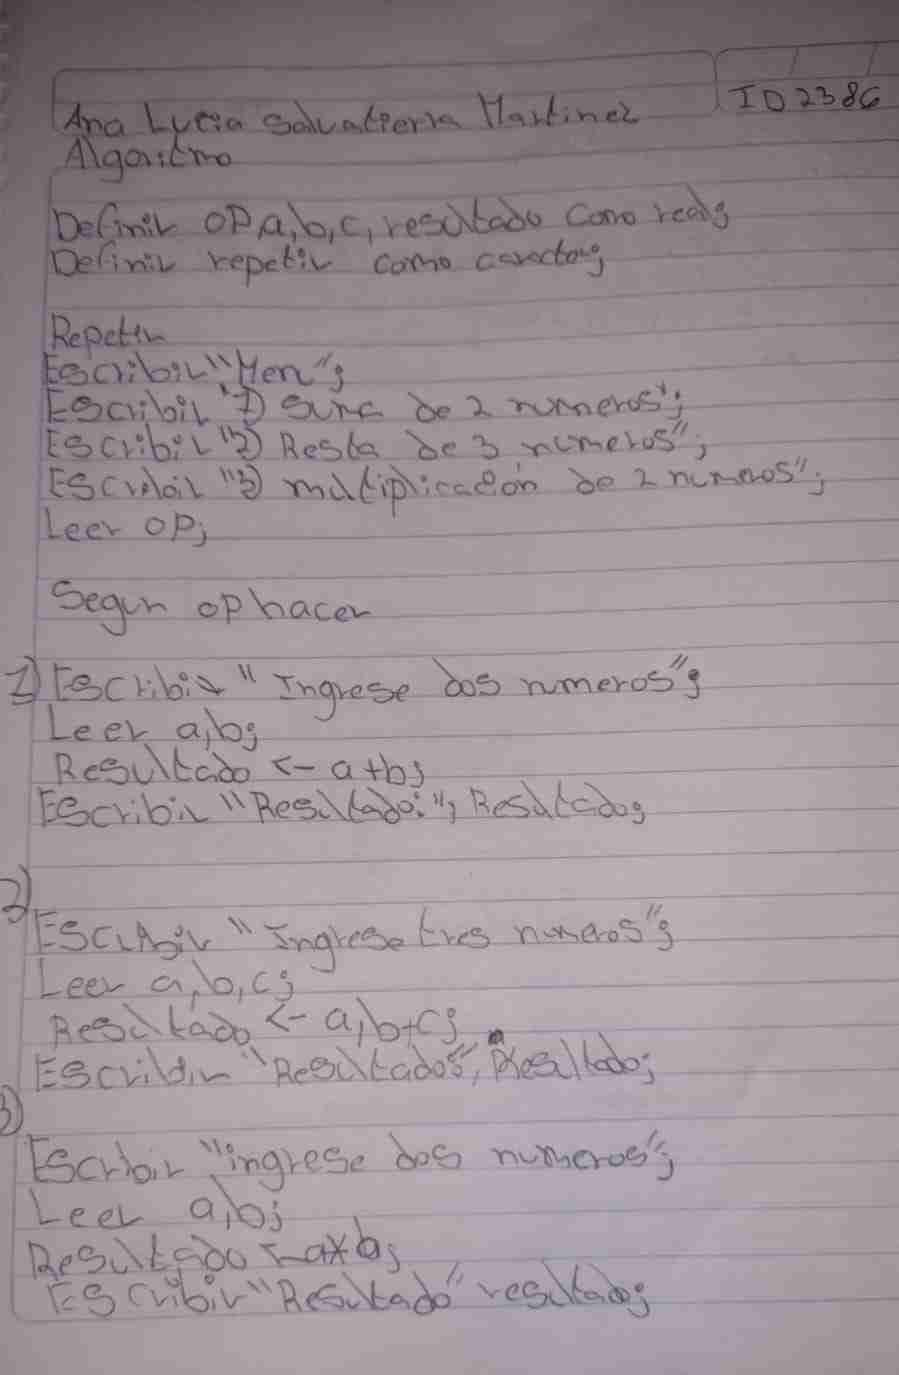 ID2386
Ana Lucia Salvatierra Martinez
Algoritmo
Definir OP a,b,c, resultado como real;
Definir repetir como caracter;
Repetir
Escribir "Men";
Escribir "1) Suma de 2 numeros";
Escribir "2) Resta de 3 numeros";
Escribir "3) multiplicación de 2 numeros";
Leer OP;
Segun op hacer
1) Escribir "Ingrese dos numeros";
Leer a,b;
Resultado <- a+b;
Escribir "Resultado:", Resultado;
2)
Escribir "Ingrese tres numeros";
Leer a,b,c;
Resultado <- a,b+c;
Escribir "Resultados", Resultado;
3)
Escribir "ingrese dos numeros";
Leer a,b;
Resultado <-a*b;
Escribir "Resultado" resultado;